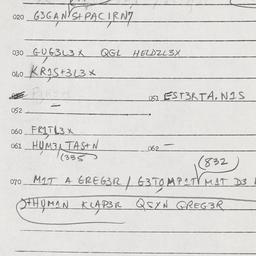 020 G3GAN S+PACIRN7
030 GUG3L3X QGL HELDZL3X
040 KR1S+3L3X
051 EST3RTA.N1S
052 —
060 FR1TL3X
061 HUM3L TAS+N 062 —
(335
(832
070 M1T A GREG3R / G3TOMP1T M1T D3
+HUM1N KLAP3R QSYN GREG3R